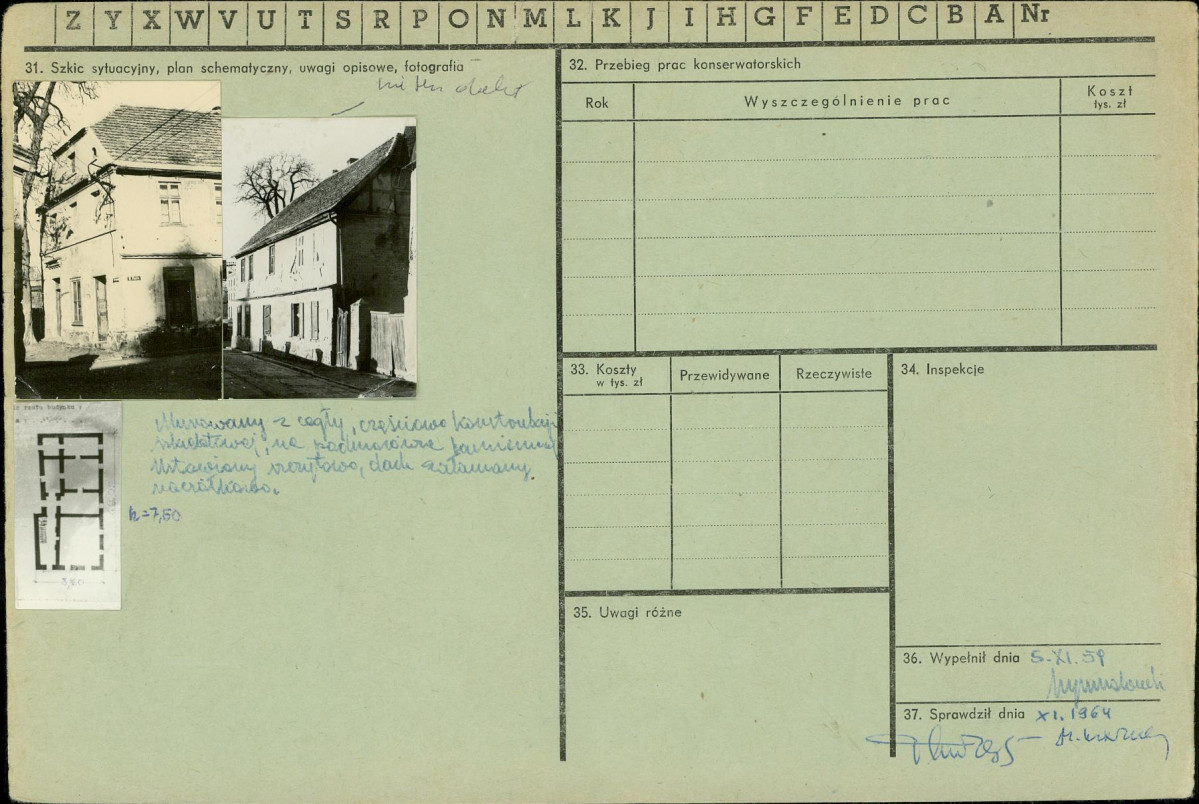 Z Y X W V U T S R P O N M L K J I H G F E D C B A Nr
31. Szkic sytuacyjny, plan schematyczny, uwagi opisowe, fotografia
nie ten obiekt
Murowany z cegły, częściowo konstrukcji
szkieletowej, na podmurówce kamiennej
Ustawiony szczytowo, dach załamany
naczółkowo.
h=7,60
8,60
32. Przebieg prac konserwatorskich
Rok
Wyszczególnienie prac
Koszt
tys. zł
33. Koszty
w tys. zł
Przewidywane
Rzeczywiste
34. Inspekcje
35. Uwagi różne
36. Wypełnił dnia 5.XI.59
37. Sprawdził dnia XI.1964